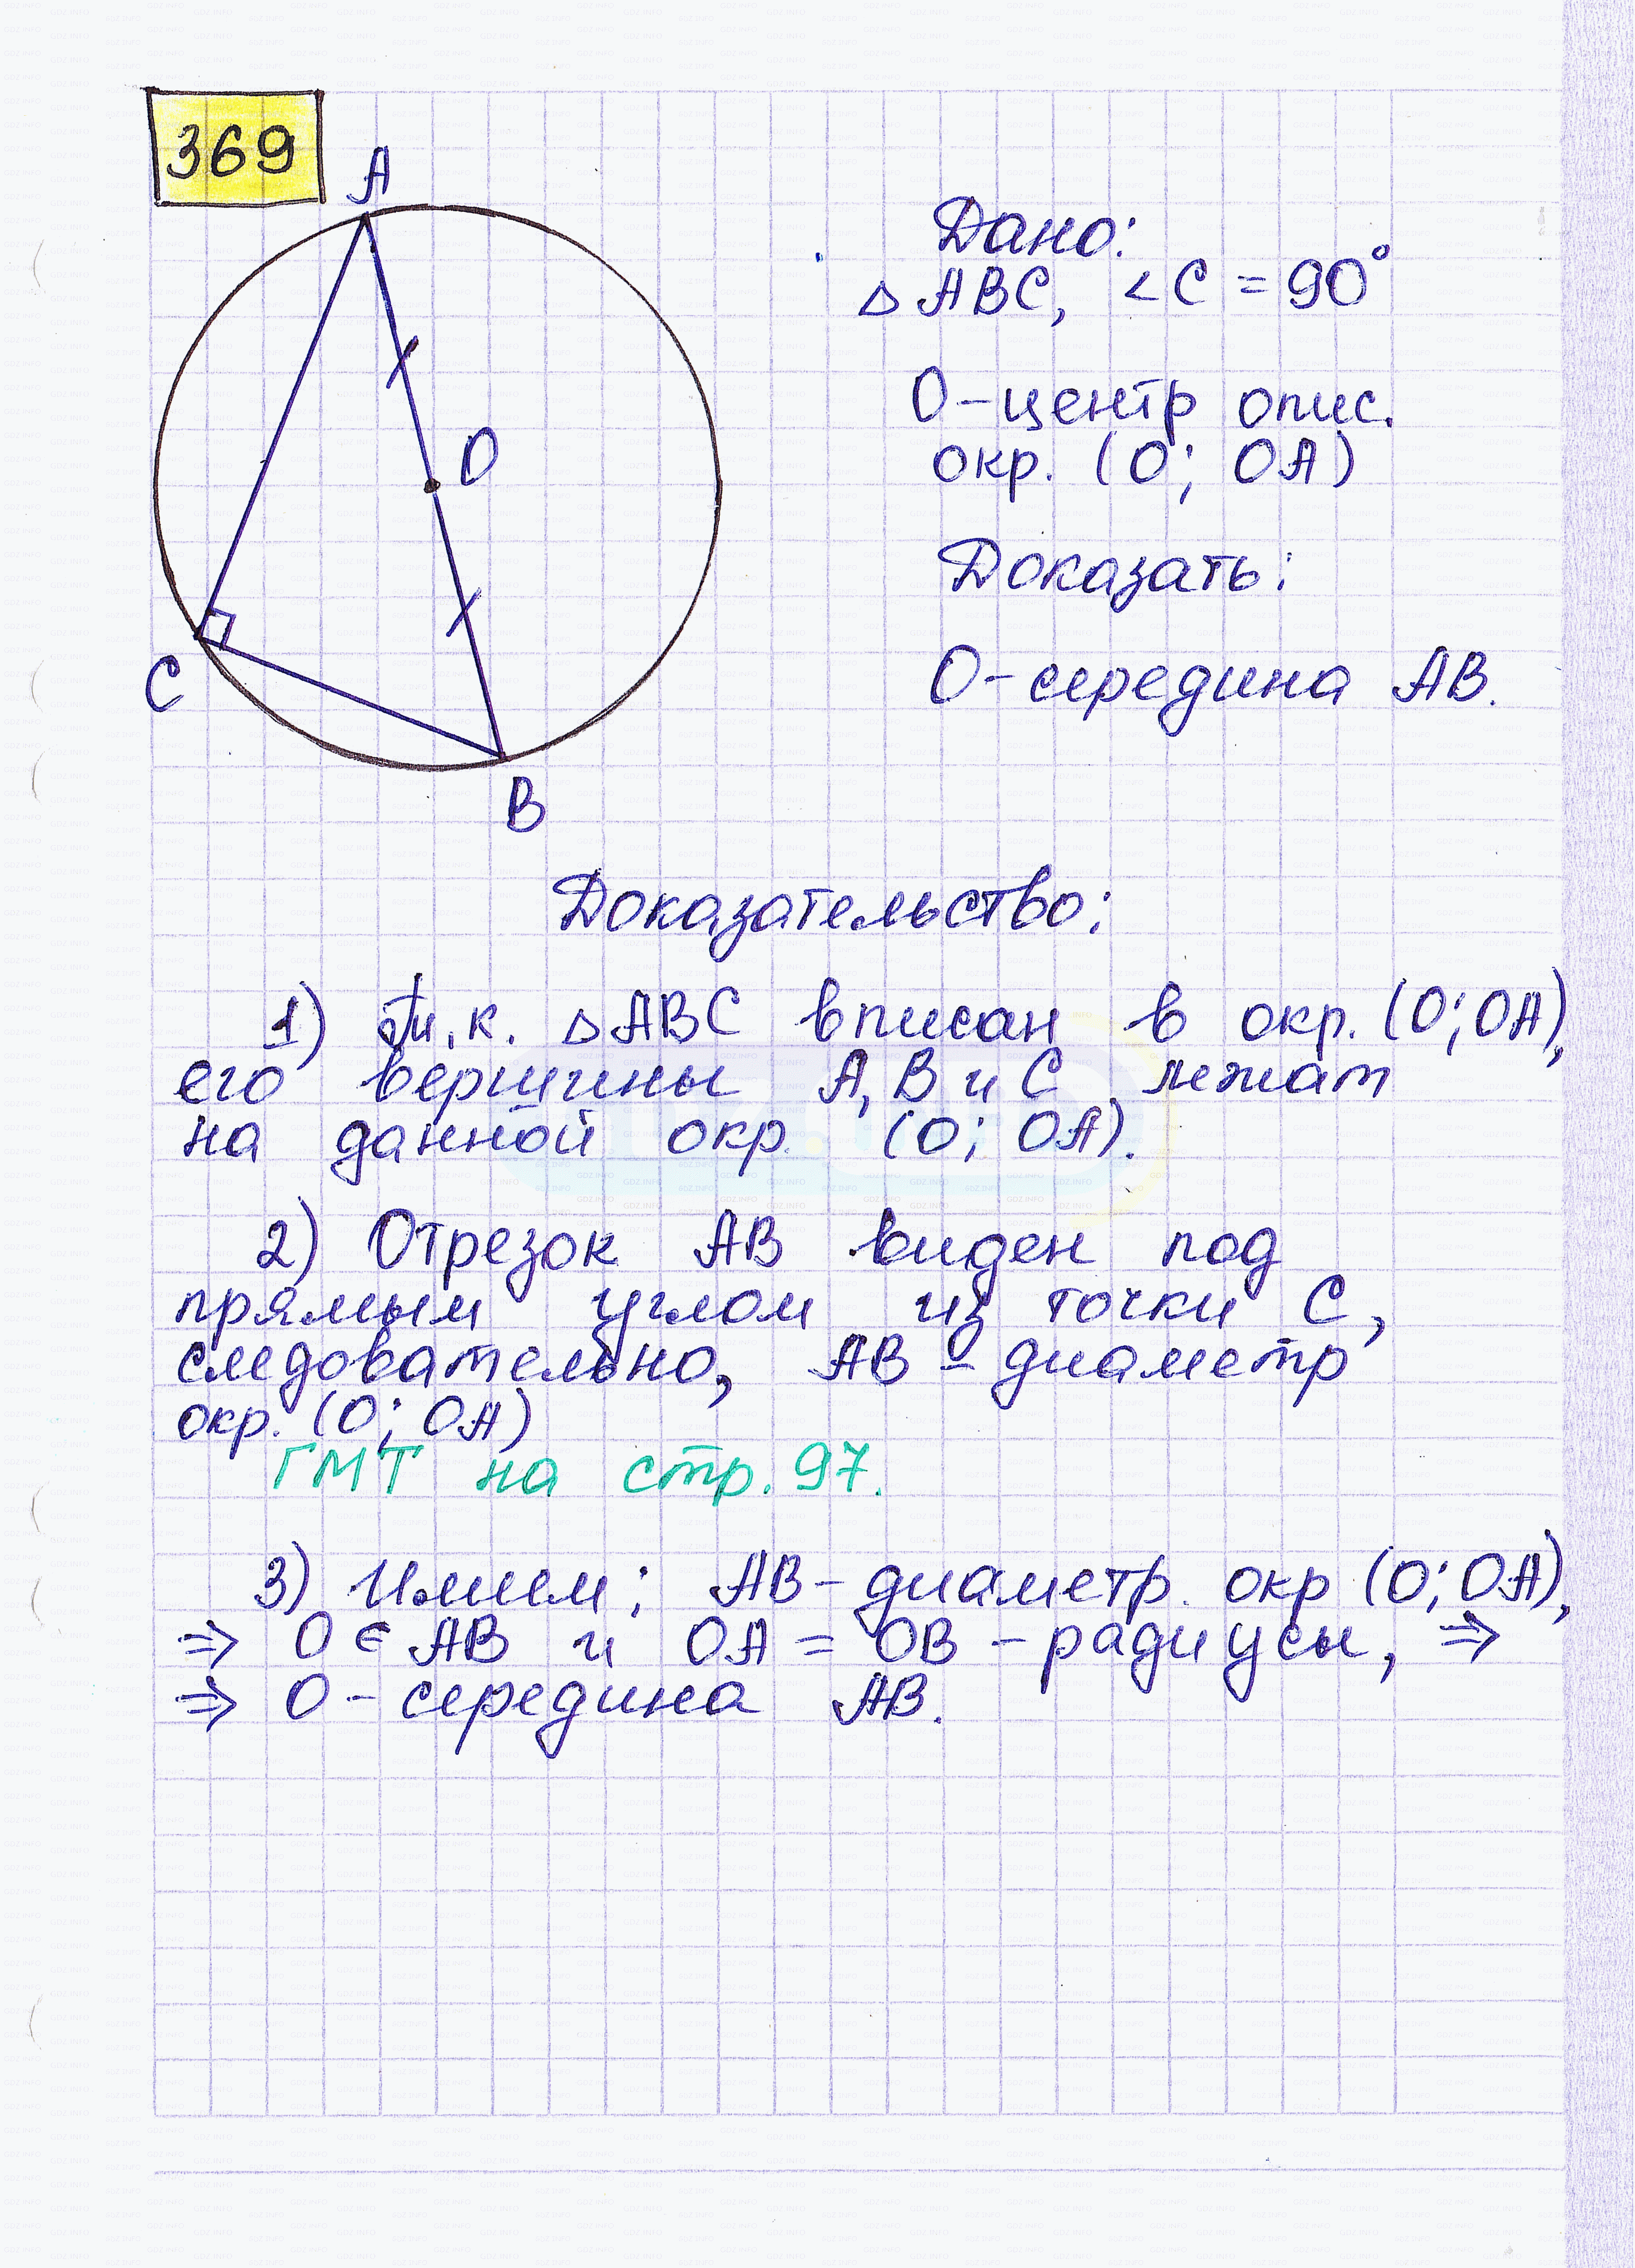 369
A
O
C
B
Дано:
△ABC, ∠C = 90°
O-центр опис.
окр. (O; OA)
Доказать:
O-середина AB.
Доказательство:
1) Т.к. △ABC вписан в окр. (O; OA),
его вершины A, B и C лежат
на данной окр. (O; OA).
2) Отрезок AB виден под
прямым углом из точки C,
следовательно, AB - диаметр
окр. (O; OA)
ГМТ на стр. 97.
3) Имеем: AB-диаметр окр (O; OA),
⇒ O ∈ AB и OA = OB - радиусы, ⇒
⇒ O - середина AB.